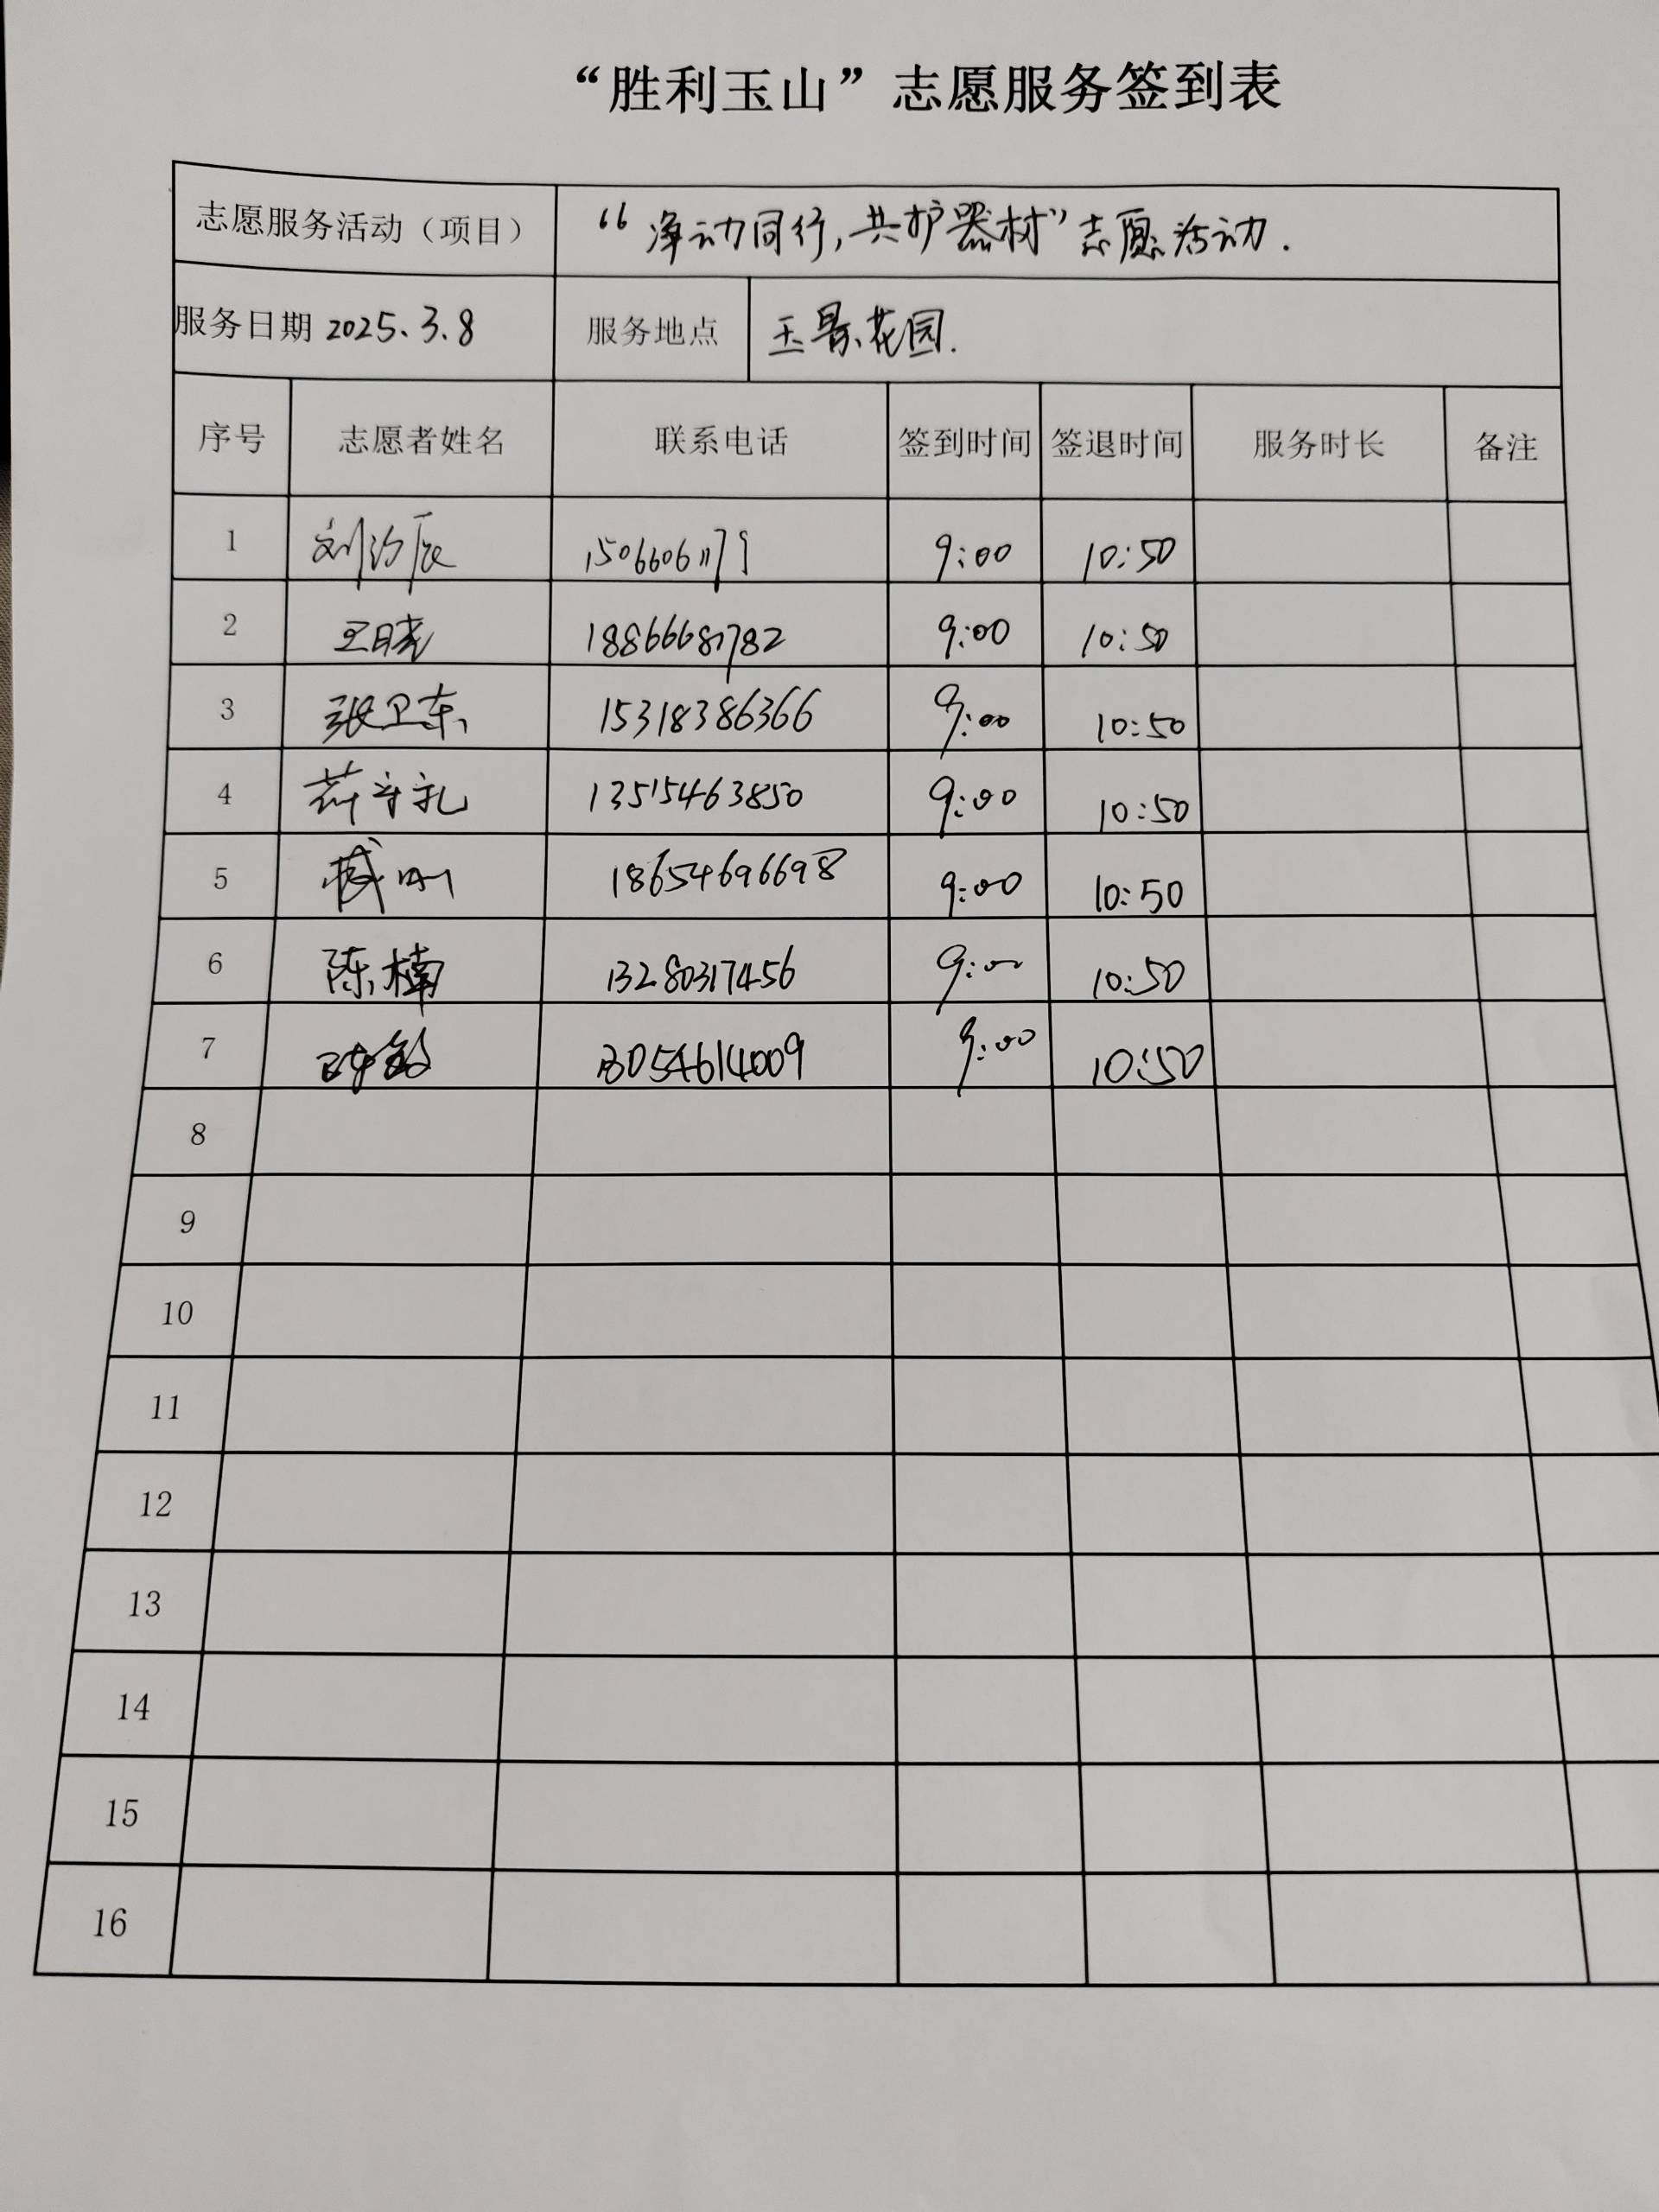 “胜利玉山”志愿服务签到表
志愿服务活动（项目） “净动同行,共护器材”志愿活动.
服务日期 2025.3.8 服务地点 玉景花园.
序号 志愿者姓名 联系电话 签到时间 签退时间 服务时长 备注
1 刘汾辰 9:00 10:50
2 王晓 18866681782 9:00 10:50
3 张卫东 15318386366 9:00 10:50
4 薛守礼 13515463850 9:00 10:50
5 臧明 18654696698 9:00 10:50
6 陈楠 13280317456 9:00 10:50
7 13054614009 9:00 10:50
8
9
10
11
12
13
14
15
16